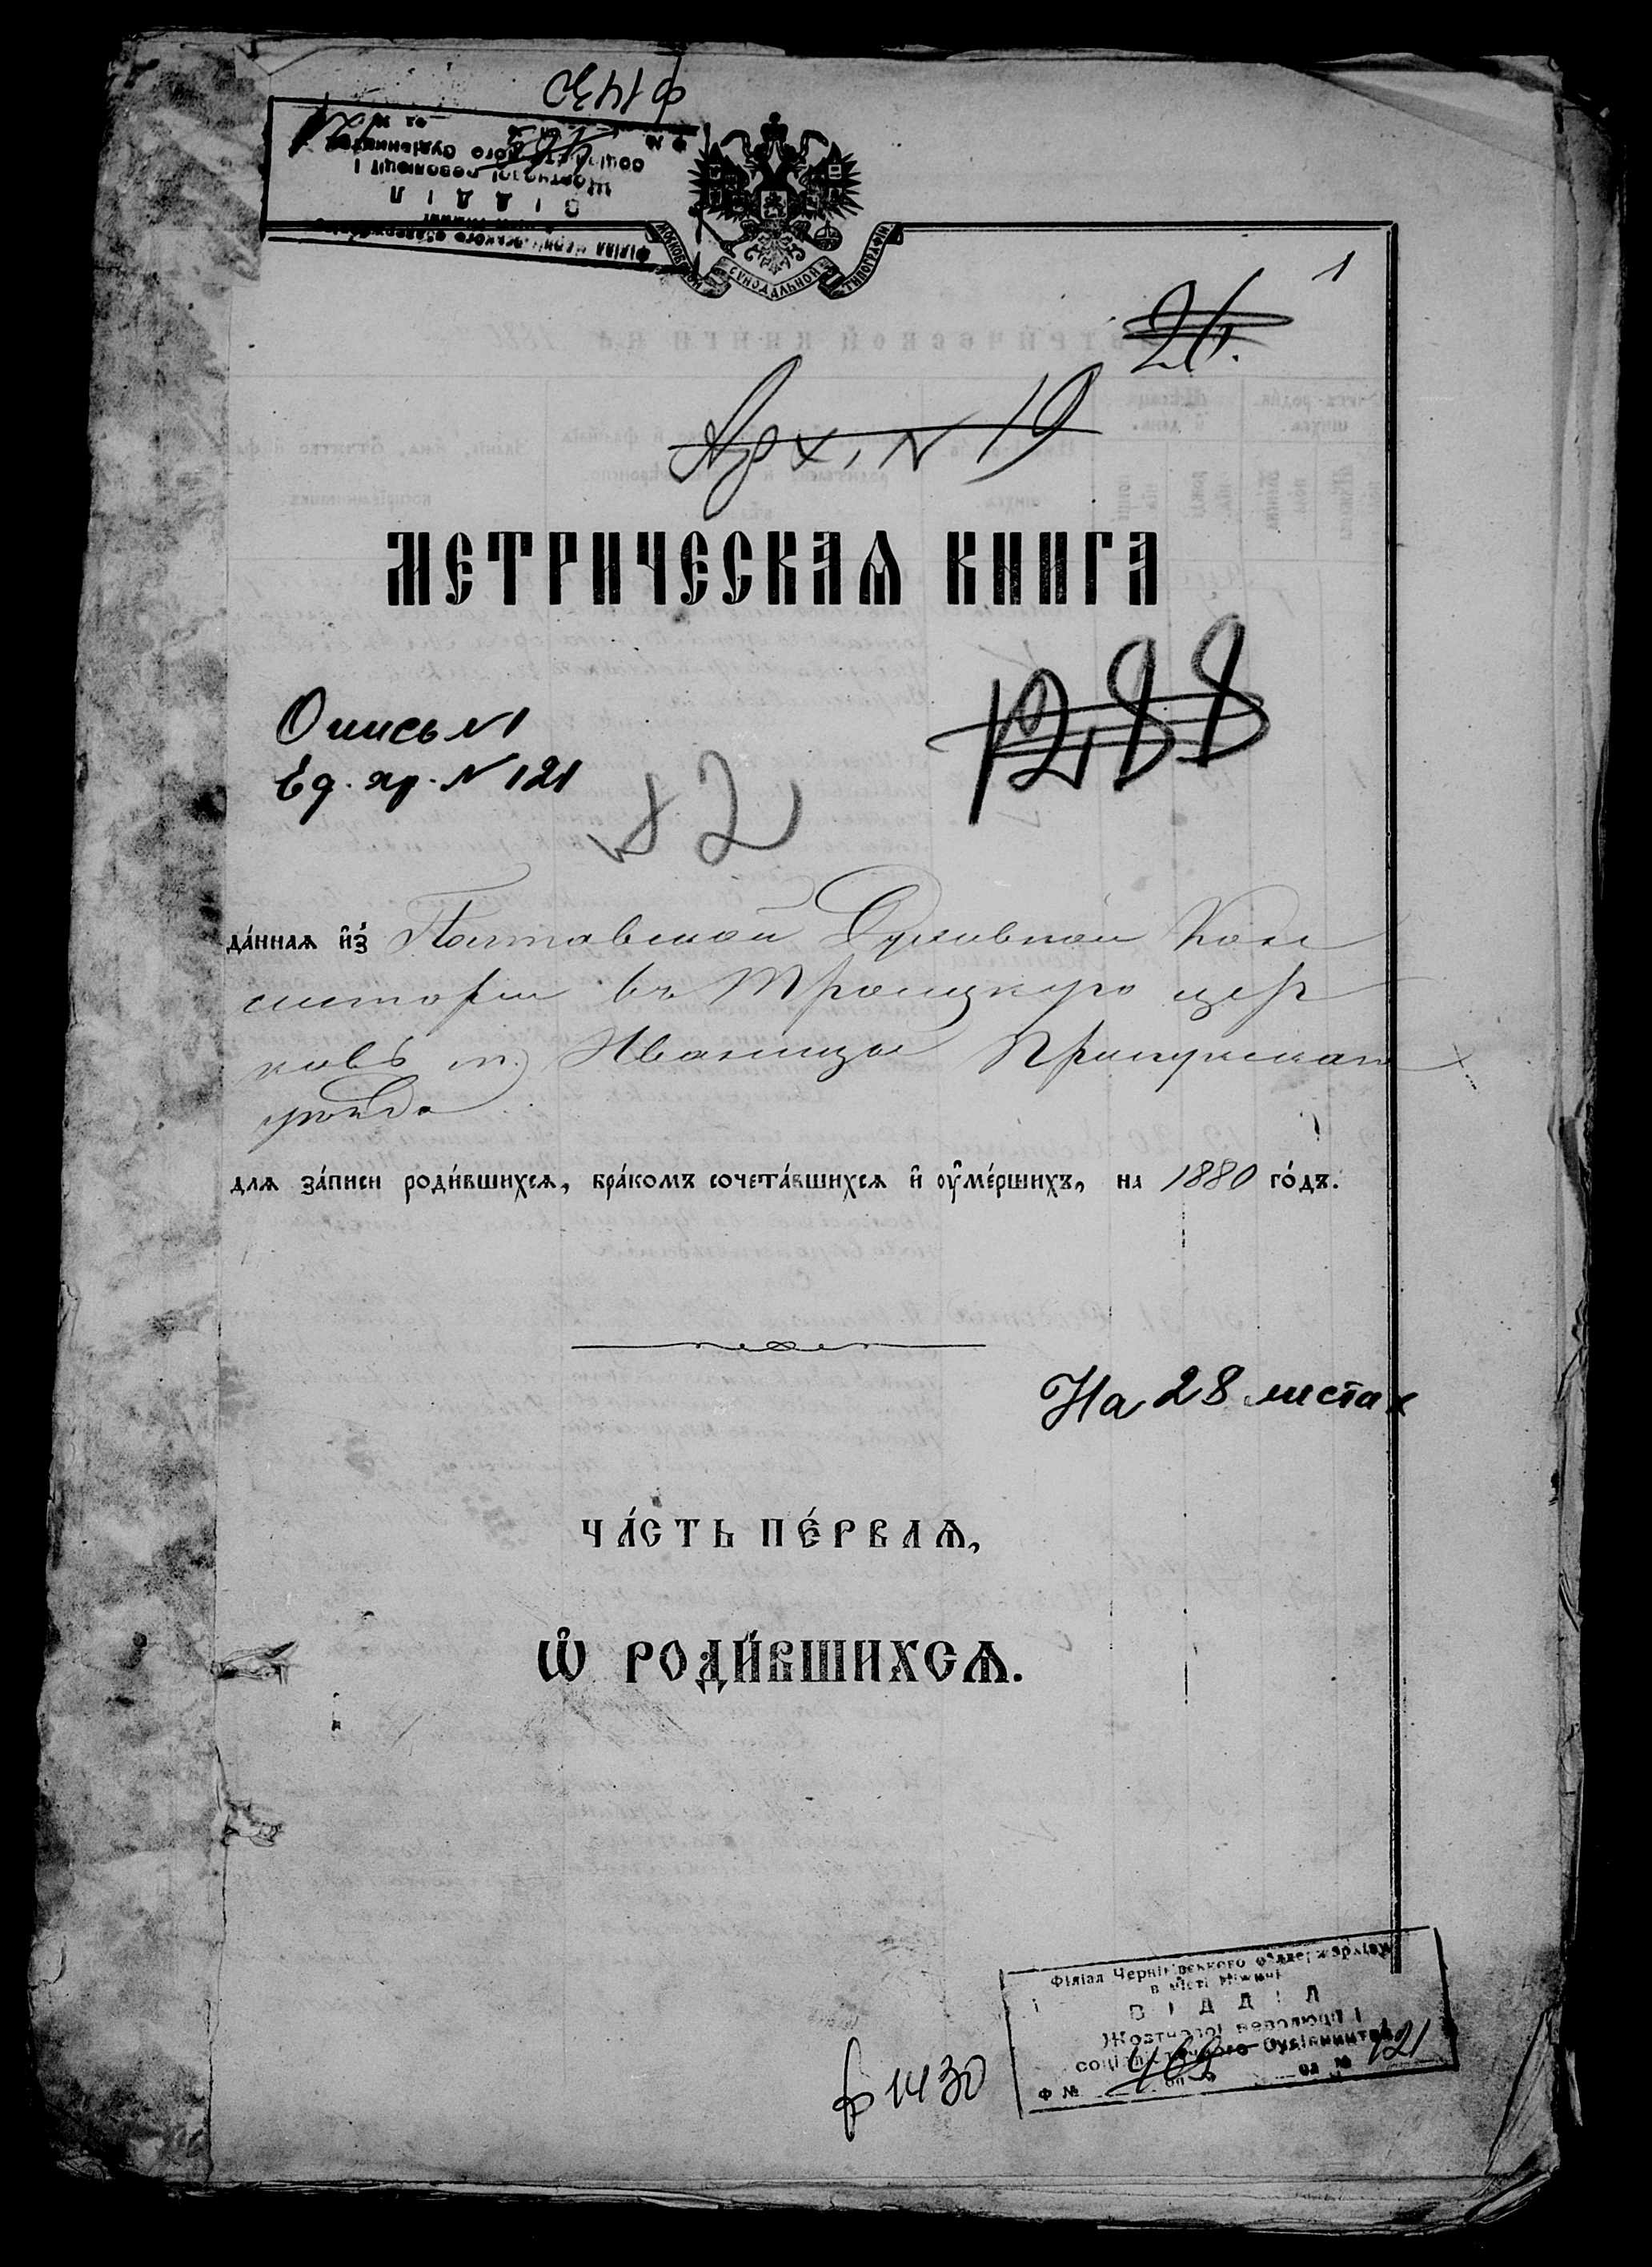 ф 1430
Філіал Чернігівського облдержархіву
в місті Ніжині
ВІДДІЛ
Жовтневої революції і
соціалістичного будівництва
Ф № оп од №
МОСКОВСКОЙ СѴНОДАЛЬНОЙ ТИПОГРАФІИ
1
26.
Арх. N 19
МЕТРИЧЕСКАѦ КНИГА
Опись N1
Ед. хр. N 121
1288
82
да́ннаѧ и҆з̾ Полтавской Духовной Кон
систоріи въ Троицкую цер
ковь м. Иваницы Прилукскаго
уѣзда
длѧ за́писи роди́вшихсѧ, бра́комъ сочета́вшихсѧ и҆ оу҆ме́ршихъ, на 1880 го́дъ.
На 28 листах
ЧА́СТЬ ПЕ́РВАѦ,
Ѡ҆ РОДИ́ВШИХСѦ.
Філіал Чернігівського облдержархіву
в місті Ніжині
ВІДДІЛ
Жовтневої революції і
соціалістичного будівництва
Ф № оп од № 121
ф 1430